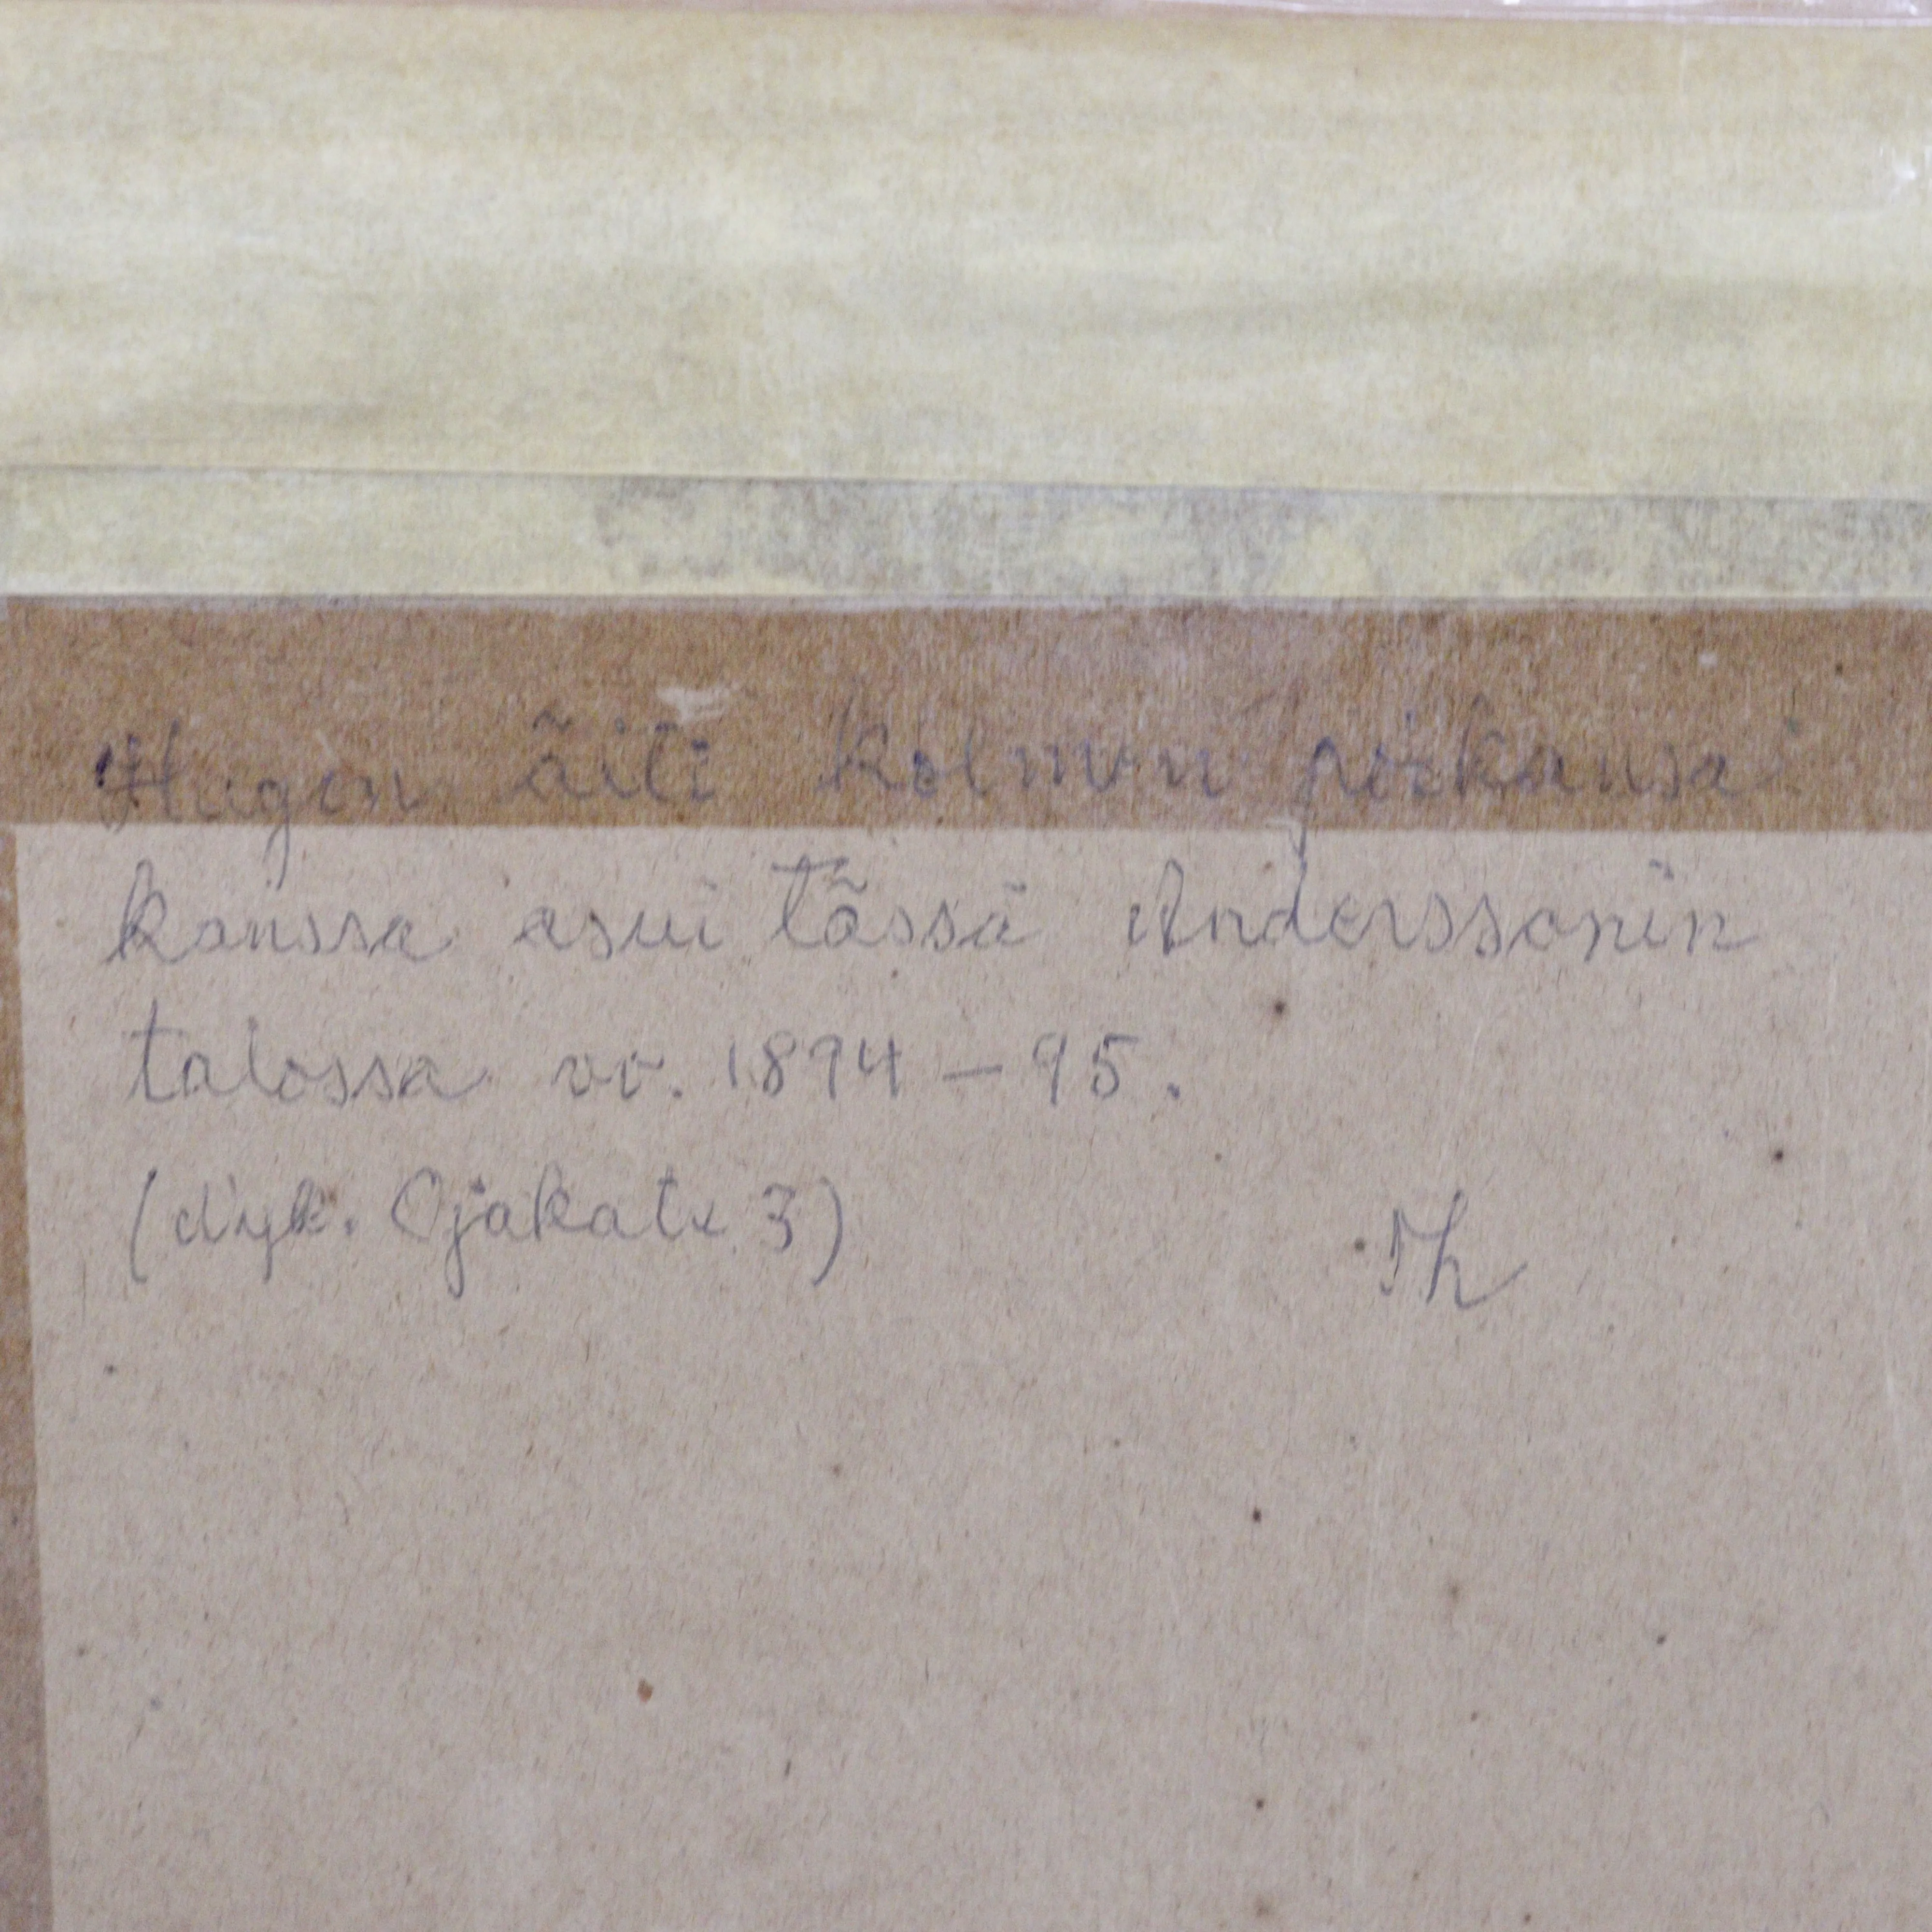 Hugon äiti kolmen poikansa
kanssa asui tässä Anderssonin
talossa vv. 1894 – 95.
(nyk. Ojakatu 3)